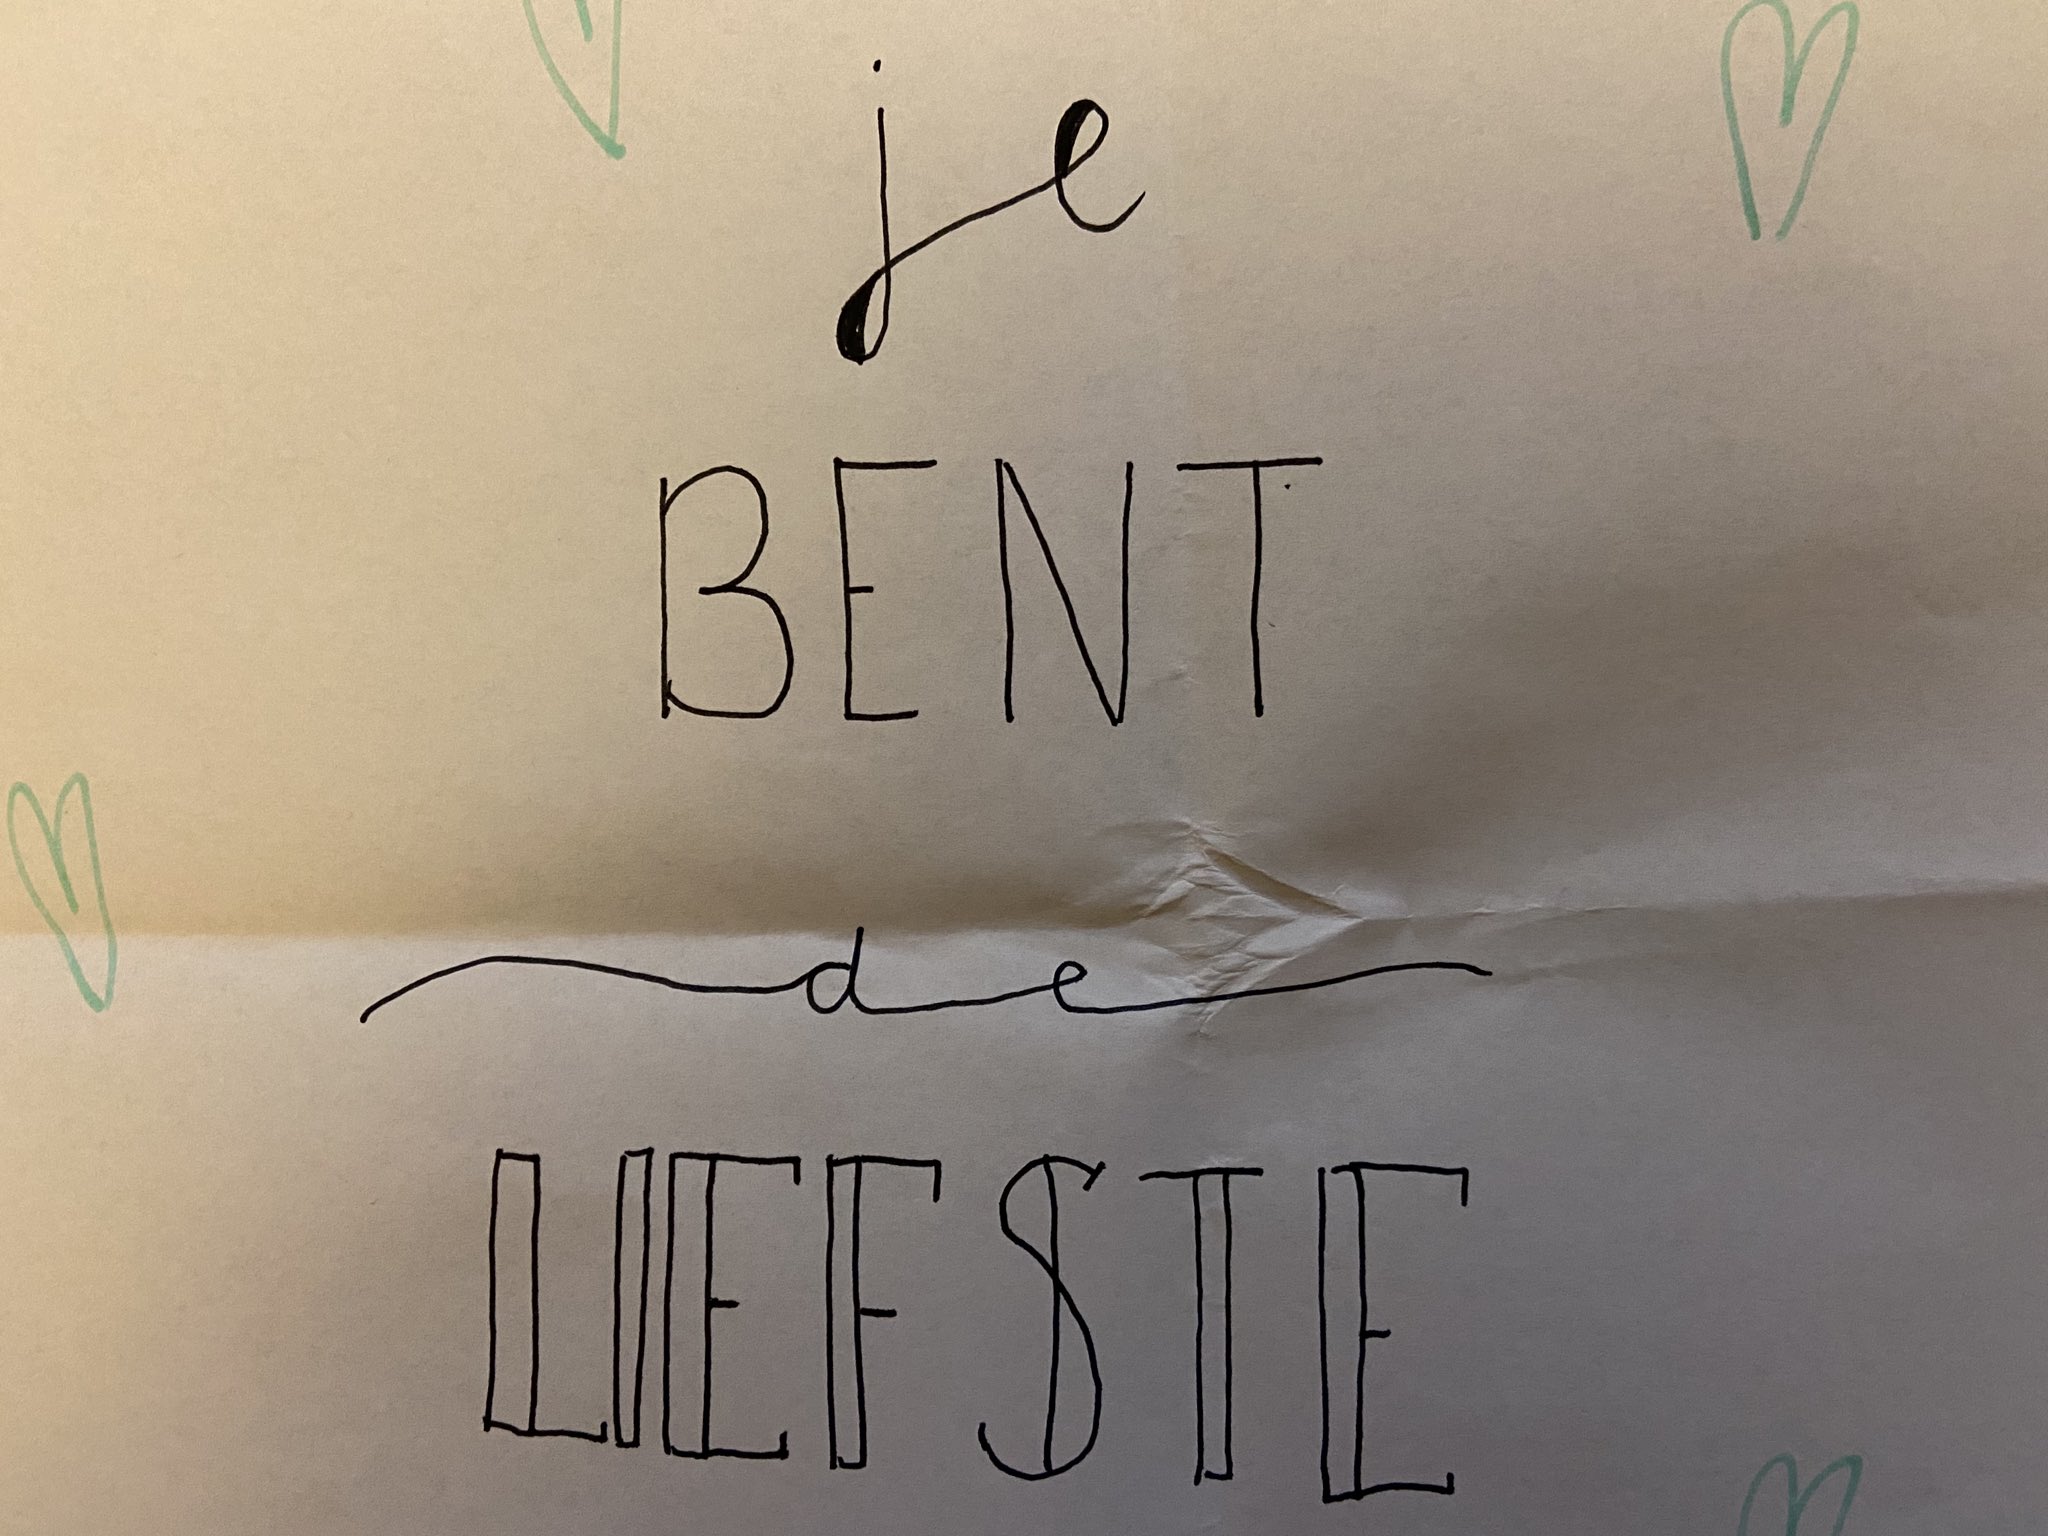 je
BENT
de
LIEFSTE